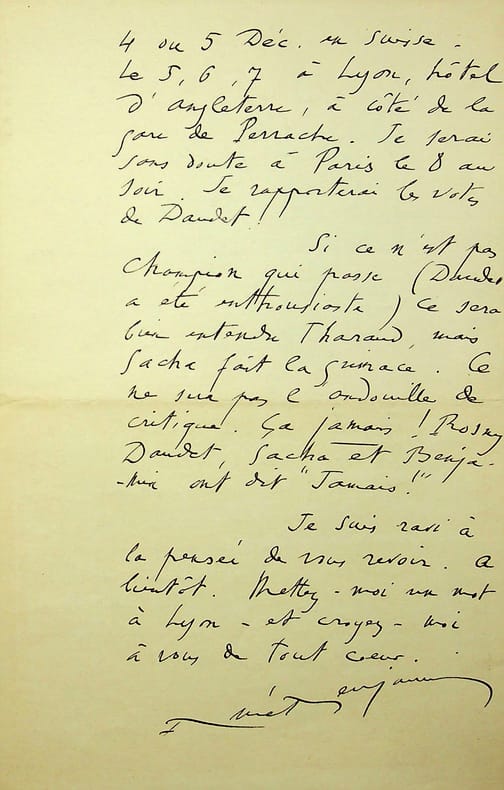 4 ou 5 Déc. en Suisse.
Le 5, 6, 7 à Lyon, hôtel
d'angleterre, à côté de la
gare de Perrache. Je serai
sans doute à Paris le 8 au
soir. Je rapporterai les votes
de Daudet.
Si ce n'est pas
Champion qui passe (Daudet
a été enthousiaste) ce sera
bien entendu Tharaud, mais
Sacha fait la grimace. Ce
ne sera pas l'andouille de
critique. Ça jamais ! Rosny
Daudet, Sacha et Benja-
-min ont dit "Jamais!"
Je suis ravi à
la pensée de vous revoir. A
bientôt. Mettez-moi un mot
à Lyon - et croyez-moi
à vous de tout coeur.
enjamin